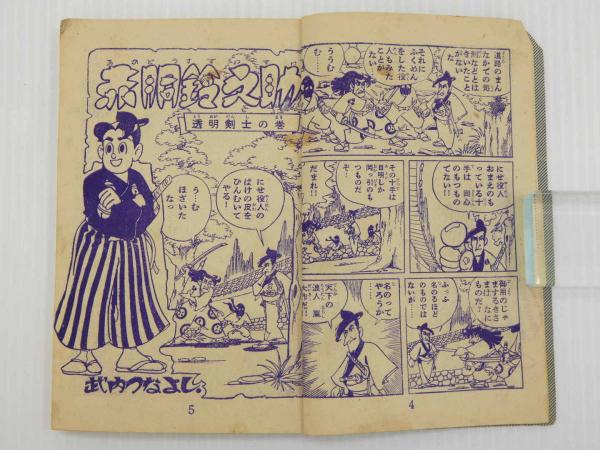 道路のまん
なかでの処
刑などとは
きいたこと
がない
それに
ふくめん
をした役
人もみた
ことが
ない
ううむ
む…
にせ役人
おまえのも
っている十
手は同心
のもつもの
でない!!
その十手は
目明しか
岡っ引のも
つものだ
ぞ…
だまれ!!
御用のじゃ
まするきさ
まはなに
ものだ!!
ふっふ
名のるほど
のものでは
ないが……
名のって
やろうか
天下の
浪人 嵐
4
赤胴鈴之助
透明剣士の巻
にせ役人の
ばけの皮を
ひんむいて
やる!
うーむ
ほざいた
なっ
武内つなよし
5